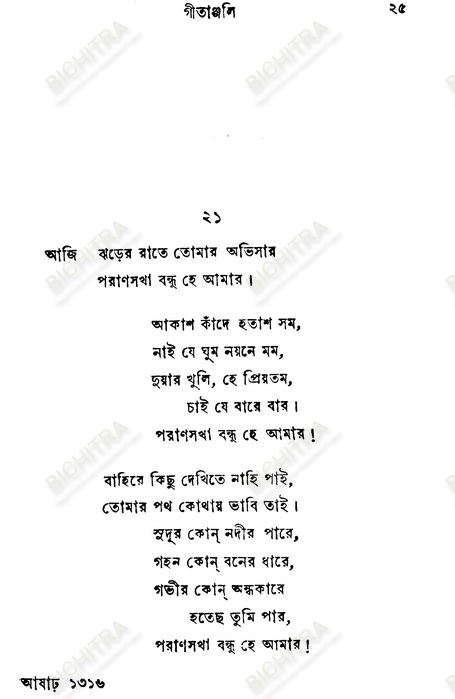 গীতাঞ্জলি ২৫
২১
আজি ঝড়ের রাতে তোমার অভিসার
পরাণসখা বন্ধু হে আমার।
আকাশ কাঁদে হতাশ সম,
নাই যে ঘুম নয়নে মম,
দুয়ার খুলি, হে প্রিয়তম,
চাই যে বারে বার।
পরাণসখা বন্ধু হে আমার!
বাহিরে কিছু দেখিতে নাহি পাই,
তোমার পথ কোথায় ভাবি তাই।
সুদূর কোন্ নদীর পারে,
গহন কোন্ বনের ধারে,
গভীর কোন্ অন্ধকারে
হতেছ তুমি পার,
পরাণসখা বন্ধু হে আমার!
আষাঢ় ১৩১৬
BICHITRA
BICHITRA
BICHITRA
BICHITRA
BICHITRA
BICHITRA
BICHITRA
BICHITRA